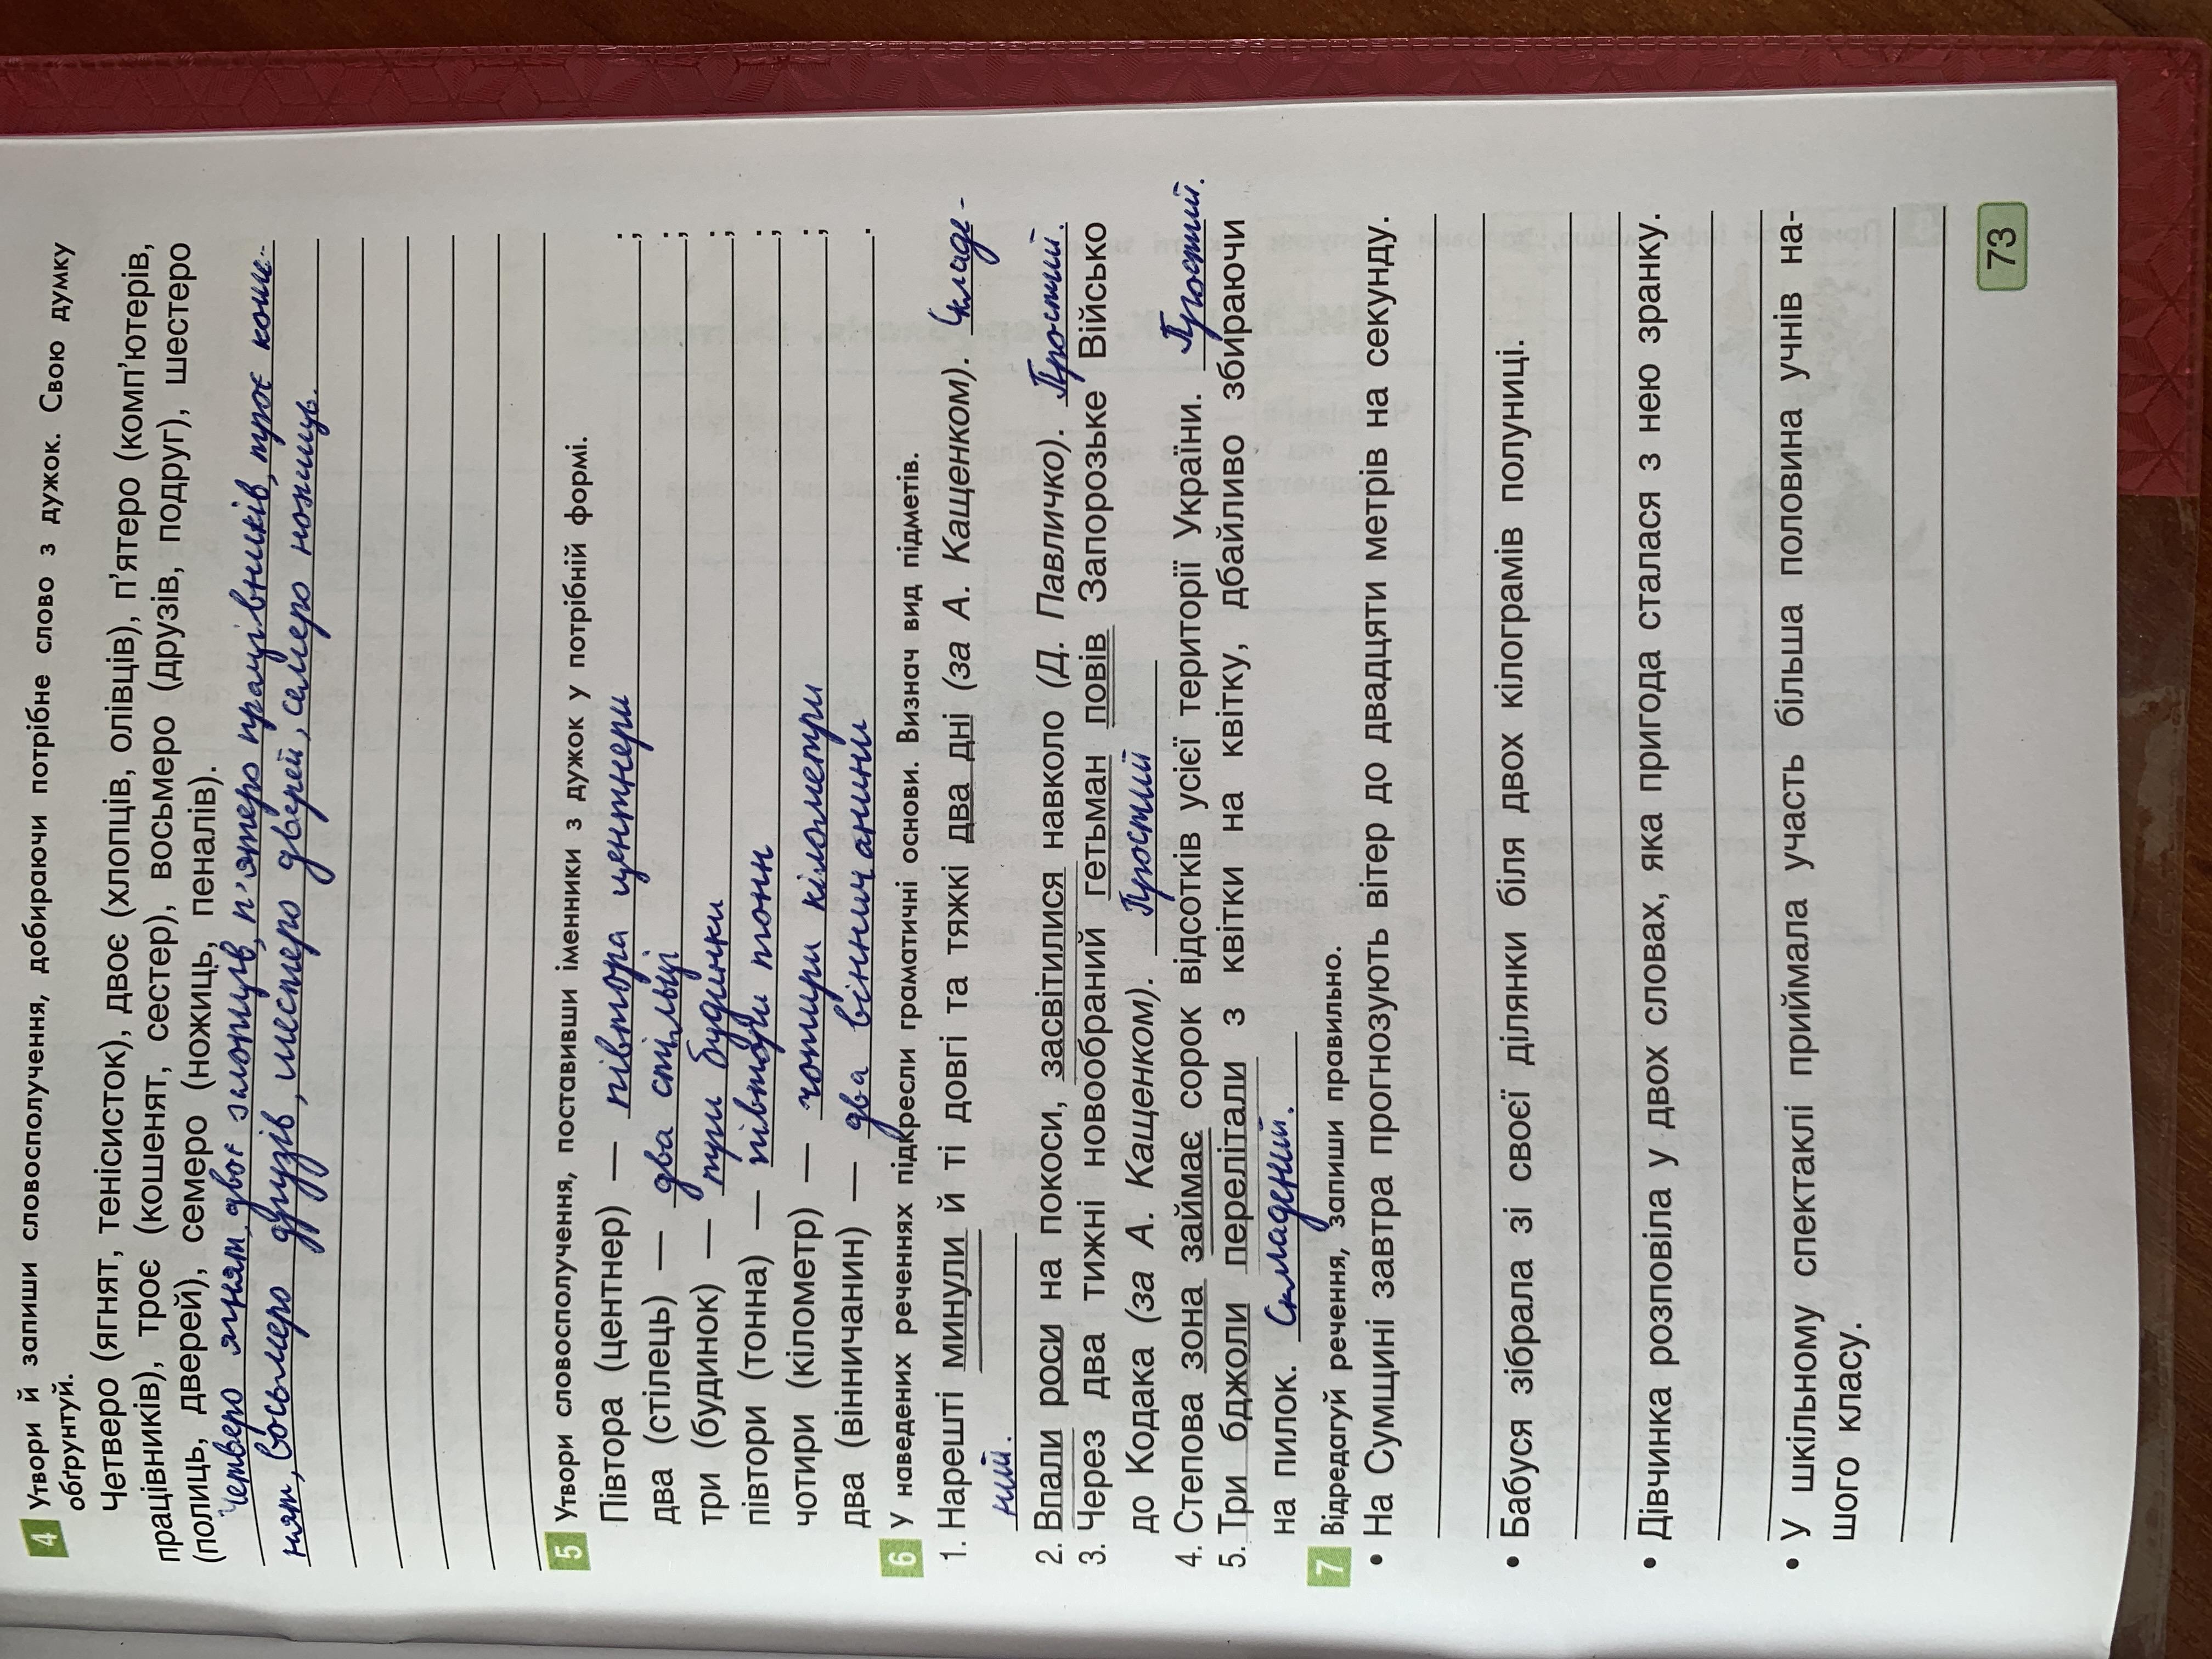 4 Утвори й запиши словосполучення, добираючи потрібне слово з дужок. Свою думку
обґрунтуй.
Четверо (ягнят, тенісисток), двоє (хлопців, олівців), п'ятеро (комп'ютерів,
працівників), троє (кошенят, сестер), восьмеро (друзів, подруг), шестеро
(полиць, дверей), семеро (ножиць, пеналів).
Четверо ягнят, двоє хлопців, п'ятеро працівників, троє коше-
нят, восьмеро друзів, шестеро дверей, семеро ножиць.
5 Утвори словосполучення, поставивши іменники з дужок у потрібній формі.
Півтора (центнер) — півтора центнери ;
два (стілець) — два стільці ;
три (будинок) — три будинки ;
півтори (тонна) — півтори тонн ;
чотири (кілометр) — чотири кілометри ;
два (вінничанин) — два вінничанини .
6 У наведених реченнях підкресли граматичні основи. Визнач вид підметів.
1. Нарешті минули й ті довгі та тяжкі два дні (за А. Кащенком). Складе-
ний.
2. Впали роси на покоси, засвітилися навколо (Д. Павличко). Простий.
3. Через два тижні новообраний гетьман повів Запорозьке Військо
до Кодака (за А Кащенком). Простий
4. Степова зона займає сорок відсотків усієї території України. Простий.
5. Три бджоли перелітали з квітки на квітку, дбайливо збираючи
на пилок. Складений.
7 Відредагуй речення, запиши правильно.
• На Сумщині завтра прогнозують вітер до двадцяти метрів на секунду.
• Бабуся зібрала зі своєї ділянки біля двох кілограмів полуниці.
• Дівчинка розповіла у двох словах, яка пригода сталася з нею зранку.
• У шкільному спектаклі приймала участь більша половина учнів на-
шого класу.
73